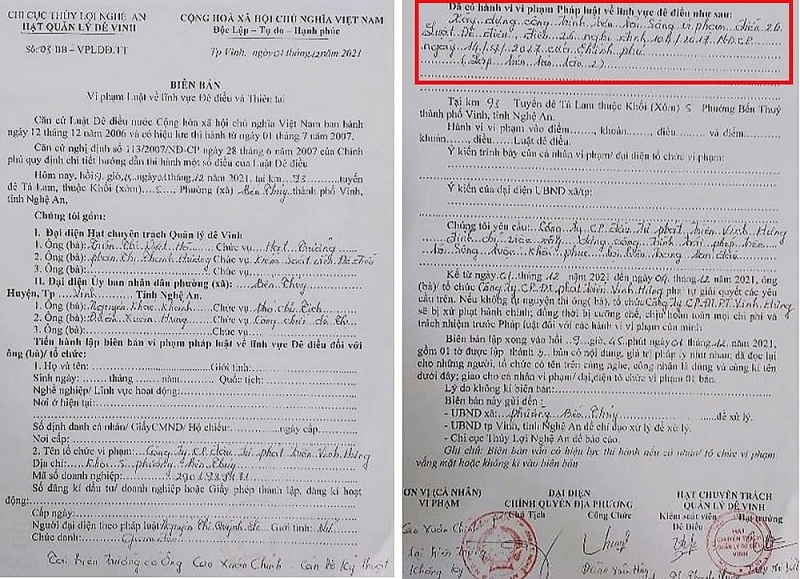 CHI CỤC THỦY LỢI NGHỆ AN
HẠT QUẢN LÝ ĐÊ VINH
Số: 05 BB - VPLDĐ.TT
CỘNG HOÀ XÃ HỘI CHỦ NGHĨA VIỆT NAM
Độc Lập - Tự do - Hạnh phúc
Tp Vinh, ngày 01 tháng 12 năm 2021
BIÊN BẢN
Vi phạm Luật về lĩnh vực Đê điều và Thiên tai
Căn cứ Luật Đê điều nước Cộng hòa xã hội chủ nghĩa Việt Nam ban hành
ngày 12 tháng 12 năm 2006 và có hiệu lực thi hành từ ngày 01 tháng 7 năm 2007.
Căn cứ nghị định số 113/2007/NĐ-CP ngày 28 tháng 6 năm 2007 của Chính
phủ quy định chi tiết hướng dẫn thi hành một số điều của Luật Đê điều
Hôm nay, hồi 9 giờ, 15, ngày 01 tháng 12 năm 2021, tại km 93 tuyến
đê Tả Lam, thuộc Khối (xóm) 5 Phường (xã) Bến Thủy thành phố Vinh,
tỉnh Nghệ An.
Chúng tôi gồm:
I. Đại diện Hạt chuyên trách Quản lý đê Vinh
1. Ông (bà): Chức vụ Hạt trưởng
2. Ông (bà): Phan Thị Thanh Hường Chức vụ Kiểm soát viên Đê điều
3. Ông (bà): Chức vụ
II. Đại diện Ủy ban nhân dân phường (xã): Bến Thủy
Huyện, Tp Vinh Tỉnh Nghệ An.
1. Ông (bà): Nguyễn Khắc Khánh Chức vụ phó chủ tịch
2. Ông (bà): Đoàn Xuân Hùng Chức vụ Công chức đô thị
3. Ông (bà): Chức vụ
Tiến hành lập biên bản vi phạm pháp luật về lĩnh vực Đê điều đối với
ông (bà)/ tổ chức:
1. Họ và tên: Giới tính:
Sinh ngày: tháng năm Quốc tịch:
Nghề nghiệp/ Lĩnh vực hoạt động:
Nơi ở hiện tại:
Số định danh cá nhân/ Giấy CMND/ Hộ chiếu: ngày cấp
Nơi cấp:
2. Tên tổ chức vi phạm: Công ty CP đầu tư phát triển Vinh Hưng
Địa chỉ: Khối 5 phường Bến Thủy
Mã số doanh nghiệp:
Số đăng kí đầu tư/ doanh nghiệp hoặc Giấy phép thành lập, đăng kí hoạt
động:
Cấp ngày:
Người đại diện theo pháp luật: Giới tính: Nữ
Chức danh: Giám đốc
Tại hiện trường có Ông Cao Xuân Chính - Cán bộ kỹ thuật
Đã có hành vi vi phạm Pháp luật về lĩnh vực đê điều như sau:
Xây dựng công trình trên bãi sông vi phạm điều 26
luật Đê điều, điều 26 nghị định 104/2017/NĐ.CP
ngày 14/9/2017 của Chính phủ
Tại km 93 Tuyến đê Tả Lam thuộc Khối (Xóm) 5 Phường Bến Thuỷ
thành phố Vinh, tỉnh Nghệ An.
Hành vi vi phạm vào điểm, khoản, điều và điểm
khoản, điều Luật đê điều.
Ý kiến trình bày của cá nhân vi phạm/ đại diện tổ chức vi phạm:
Ý kiến của đại diện UBND xã/tp:
Chúng tôi yêu cầu: Công ty CP đầu tư phát triển Vinh Hưng
đình chỉ việc xây dựng công trình trái phép trên
bãi sông
Kể từ ngày 01 12 năm 2021 đến ngày 04 12 năm 2021, ông
(bà)/ tổ chức Công ty CP.ĐT phát triển Vinh Hưng phải tự giải quyết các yêu
cầu trên. Nếu không tự nguyện thi ông( bà), tổ chức Công ty CP.ĐT.PT.Vinh Hưng
sẽ bị xử phạt hành chính; đồng thời bị cưỡng chế, chịu hoàn toàn mọi chi phí và
trách nhiệm trước Pháp luật đối với các hành vi vi phạm của mình.
Biên bản lập xong hồi 9 giờ 45 phút ngày 01 tháng 12 năm 2021,
gồm 01 tờ được lập thành 5 bản có nội dung, giá trị pháp lý như nhau; đã đọc lại
cho những người, tổ chức có tên trên cùng nghe, công nhận là đúng và cùng kí tên
dưới đây; giao cho cá nhân vi phạm/ đại diện tổ chức vi phạm 01 bản.
Lý do không kí biên bản:
Biên bản này gửi đến:
- UBND xã: phường Bến Thủy để xử lý.
- UBND tp Vinh, tỉnh Nghệ An để chỉ đạo xử lý để xử lý.
- Chi cục Thủy Lợi Nghệ An để báo cáo.
Ghi chú: Biên bản vẫn có hiệu lực thi hành nếu cá nhân/ tổ chức vi phạm
vắng mặt hoặc không kí vào biên bản
ƠN VỊ (CÁ NHÂN)
VI PHẠM
ĐẠI DIỆN
CHÍNH QUYỀN ĐỊA PHƯƠNG
Chủ Tịch Công Chức
HẠT CHUYÊN TRÁCH
QUẢN LÝ ĐÊ VINH
Kiểm soát viên Hạt trưởng
Đê Điều
Cao Xuân Chính